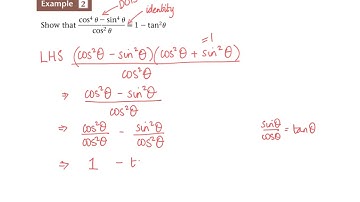 Example 2
DOTS
identity
Show that cos⁴θ − sin⁴θ / cos²θ ≡ 1 − tan²θ
=1
LHS (cos²θ − sin²θ)(cos²θ + sin²θ) / cos²θ
⇒ cos²θ − sin²θ / cos²θ
⇒ cos²θ/cos²θ − sin²θ/cos²θ
sinθ/cosθ = tanθ
⇒ 1 − t